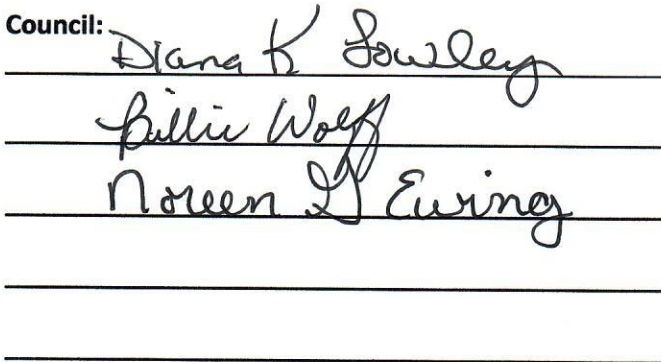 Council: Diana K Lowley
Billie Wolff
Noreen G Ewing